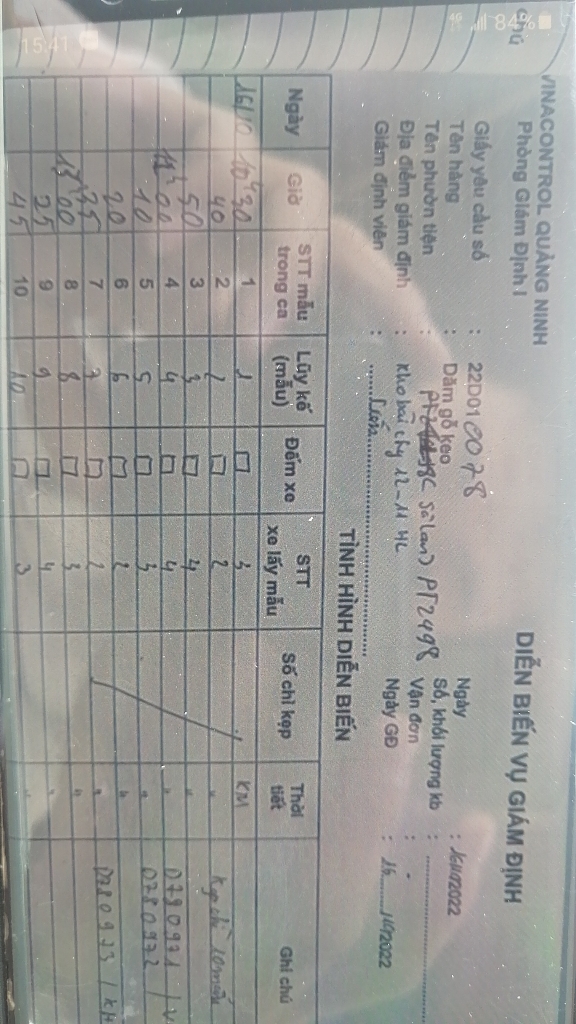 15:41
4G 84%
VINACONTROL QUẢNG NINH
Phòng Giám Định I
DIỄN BIẾN VỤ GIÁM ĐỊNH
Giấy yêu cầu số : 22D010078
Ngày : 16/10/2022
Tên hàng : Dăm gỗ keo
Số, khối lượng kb :
Tên phươn tiện : Sà lan PT2498
Vận đơn : -
Địa điểm giám định : Kho bãi 12-11 HL
Ngày GĐ : 16/10/2022
Giám định viên :
TÌNH HÌNH DIỄN BIẾN
Ngày Giờ STT mẫu trong ca Lũy kế (mẫu) Đếm xe STT xe lấy mẫu Số chì kẹp Thời tiết Ghi chú
16/10 10h30 1 1 □ 3 KM
40 2 2 □ 2 " Kẹp chì 10 mẫu
50 3 3 □ 4 "
11h00 4 4 □ 4 " 0780971 / V
10 5 5 □ 3 " 0780972 /
20 6 6 □ 2 "
7 7 □ 2 " 0780973 / KH
13h00 8 8 □ 3 "
25 9 9 □ 4 "
45 10 10 □ 3 "